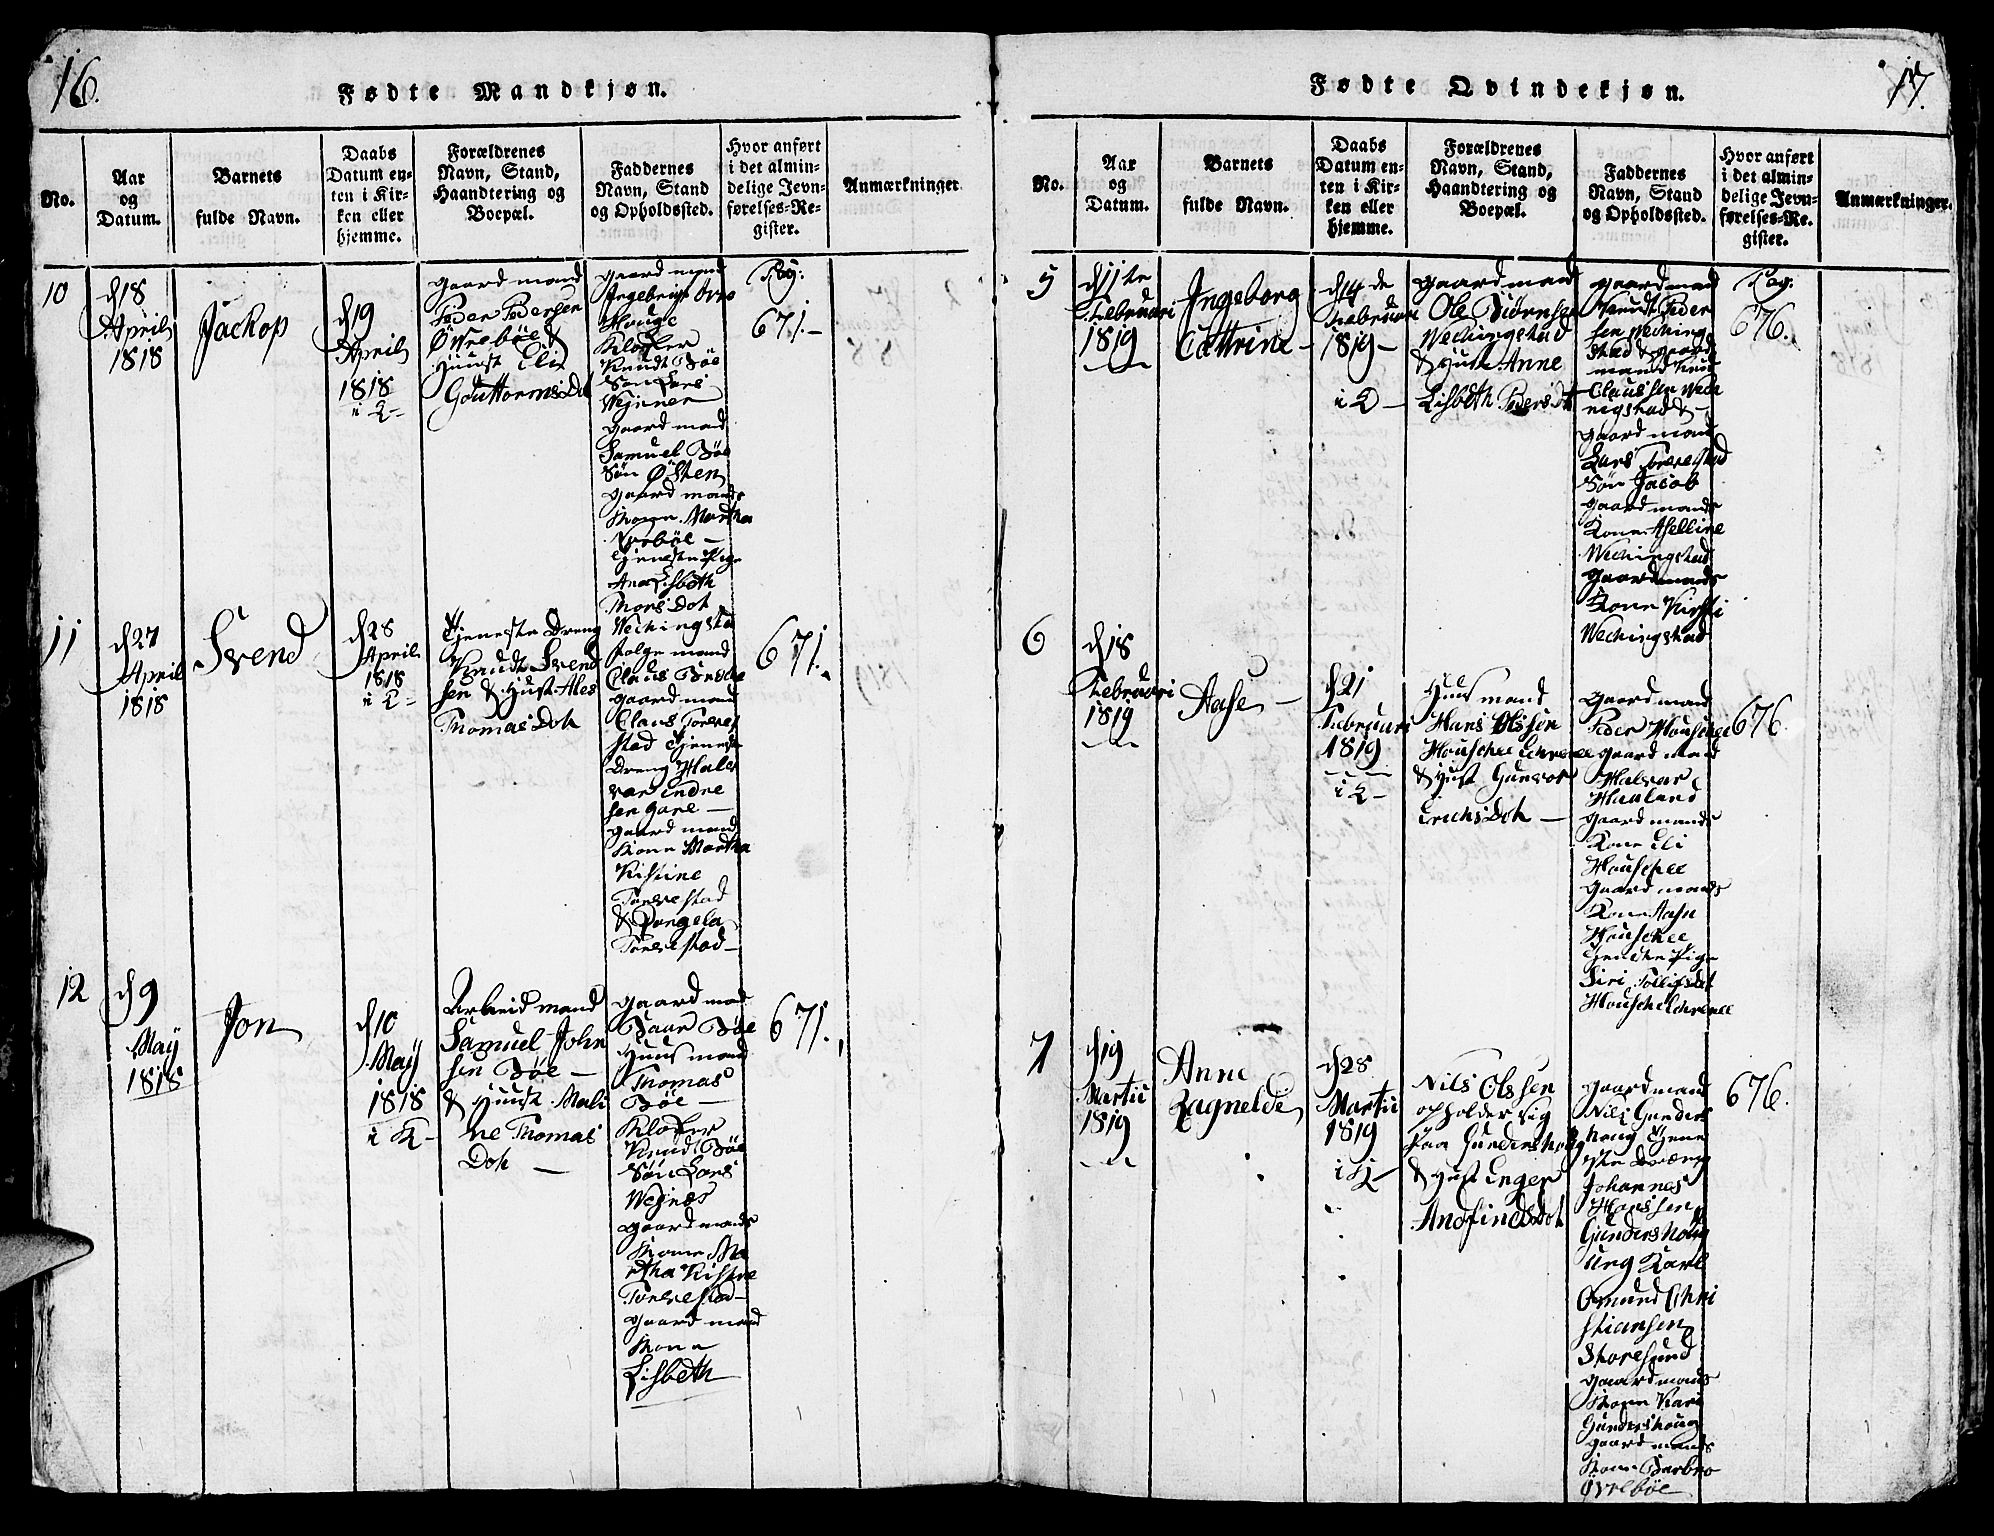 16.
Fødte Mandkjøn.
No.
Aar
og
Datum.
Barnets
fulde Navn.
Daabs
Datum en-
ten i Kir-
ken eller
hjemme.
Forældrenes
Navn, Stand,
Haandtering og
Boepæl.
Faddernes
Navn, Stand
og Opholdssted.
Hvor anført
i det almin-
delige Jevn-
førelses-Re-
gister.
Anmærkninger
10
d 18
April
1818
Jackop
d 19
April
1818
i K-
gaard mand
Peder Pedersen
Øvrebøe &
Huust Eli
GouttormsDot
gaard mand
Ingebrigt
Houge
Klocker
Knudt Bøe
Søn Lars
gaard mand
Samuel Bøe
Søn Østen
gaard mands
Kone Martha
tjeneste Pige
Ane Lisbeth
ThorsDot
Pag:
671.-
11
d 27
April
1818
Svend
d 28
April
1818
i K-
Tjeneste Dreng
Knudt Svend
sen & Hust Ales
ThomasDot
Wechingsta
gaard mand
Claus Torve
stad Tjeneste
Dreng Hal
gaard mand
Kone Martha
Kistine
Torvestad
&
Torvestad-
671.
12
d 9
May
1818
Jon
d 10
May
1818
i K-
Arbeid mand
Samuel John
sen Bøe -
& Huust Mali
ne Thomas
Dot -
gaard mad
Baar Bøe
Huus mand
Thomas
Bøe -
Klocker
Knud Bøe
Søn Lars
Wejnes
gaard mands
Kone Ma
rtha Kistine
Torvestad-
gaard mand
Kone
Lisbeth
671.
17.
Fødte Qvindekjøn.
No.
Aar
og
Datum.
Barnets
fulde Navn.
Daabs
Datum en-
ten i Kir-
ken eller
hjemme.
Forældrenes
Navn, Stand,
Haandtering og
Boepæl.
Faddernes
Navn, Stand
og Opholdssted.
Hvor anført
i det almin-
delige Jevn-
førelses-Re-
gister.
Anmærkninger.
5
d 11te
Februari
1819
Ingeborg
Cattrine-
d 14de
Februari
1819-
i K-
gaard mand
Ole Biørnsen
Wechingstad
& Hust Anne
Lisbeth PedersDot
gaard mand
Knudt Peder
sen Weching
stad & gaard
mand
Claussen Wech
ingstad &
gaard mand
Lars Torvestad
Søn Jacob
gaard mands
Kone Aselline
Wechingstad
gaard mands
Kone Kirsti
Wechingstad
Pag:
676.
6
d 18
Februari
1819
Aase-
d 21
Februari
1819
i K-
Huus mand
Hans Olssen
& Hust Gunvor
ErichsDot -
gaard mand
Peder
gaard mand
Halvar
Haaland
gaard mands
Kone Eli
gaard mands
Kone Aase
Tjeneste Pige
Siri
676.
7
d 19
Martii
1819
Anne
Ragnelde
d 28
Martii
1819
i K-
Nils Olssen
opholder sig
paa Gundershoug
& Hust Enger
AnfindsDot
gaard mand
Nils Gunders
houg Tjene
ste Dræng
Johannes
Hanssen
Gundershoug
ung Karl
Omund Chri
stiansen
Storesund
gaard mands
Kone Kari
Gundershoug
gaard mands
Kone Barbro
Øvrebøe
676.